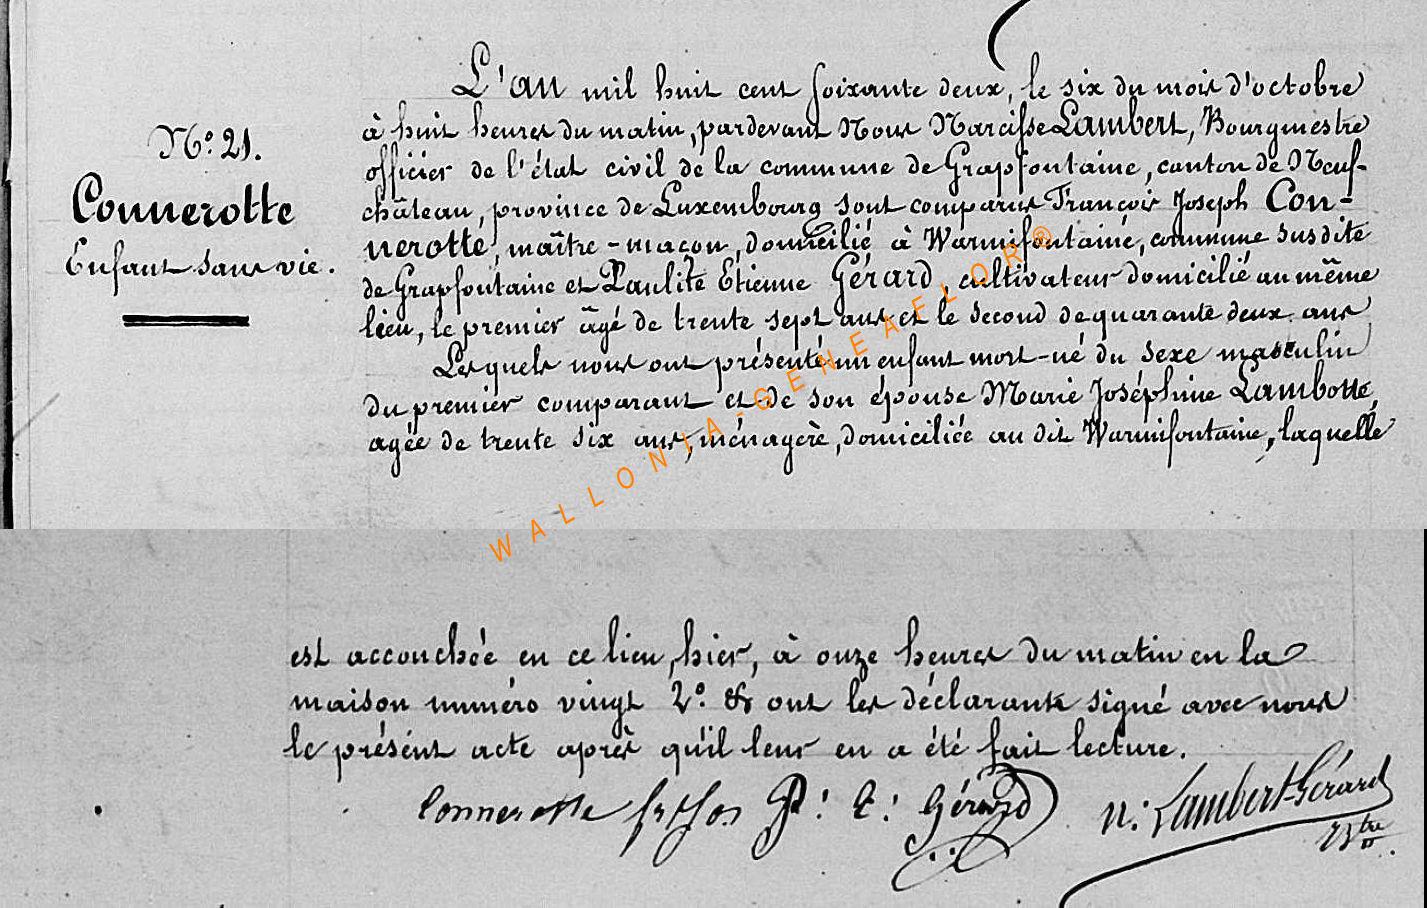 N.° 21.
Connerotte
Enfant sans vie.
L'an mil huit cent soixante deux, le six du mois d'octobre
à huit heures du matin, pardevant Nous Narcisse Lambert, Bourgmestre
officier de l'état civil de la commune de Grapfontaine, canton de Neuf-
château, province de Luxembourg sont comparus François Joseph Con-
nerotte, maître-maçon, domicilié à Warmifontaine, commune susdite
de Grapfontaine et Paulite Etienne Gérard, cultivateur domicilié au même
lieu, le premier âgé de trente sept ans et le second de quarante deux ans
Lesquels nous ont présenté un enfant mort-né du sexe masculin
du premier comparant et de son épouse Marie Joséphine Lambotte,
agée de trente six ans, ménagère, domiciliée au dit Warmifontaine, laquelle
WALLONIA-GENEAFLOR®
est accouchée en ce lieu, hier, à onze heures du matin en la
maison numéro vingt 2.° & ont les déclarants signé avec nous
le présent acte après qu'il leur en a été fait lecture.
Connerotte P: E: Gérard N: Lambert-Gérard